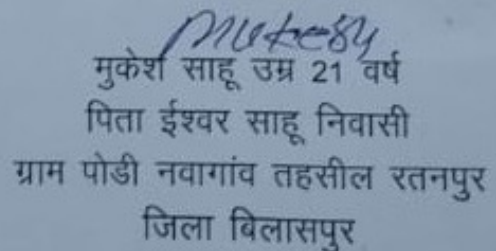 Mukesh
मुकेश साहू उम्र 21 वर्ष
पिता ईश्वर साहू निवासी
ग्राम पोडी नवागांव तहसील रतनपुर
जिला बिलासपुर